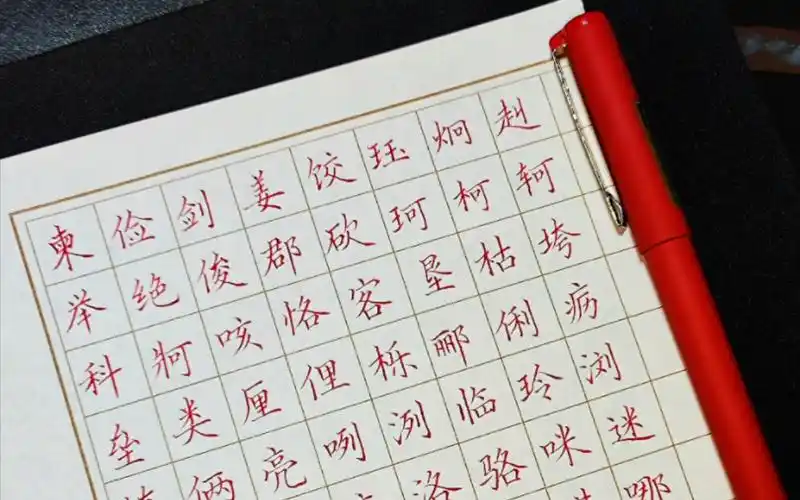 柬俭剑姜饺珏炯赳
举绝俊郡砍珂柯轲
科牁咳恪客垦枯垮
垒类厘俚栎郦俐
俩亮咧洌临玲浏
洛骆咪迷
哪